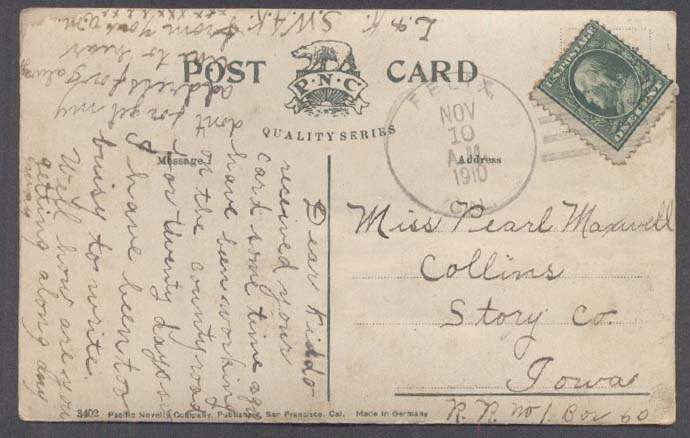 POST CARD
P·N·C
QUALITY SERIES
Message
Address
FELIX
NOV
10
A.M.
1910
CAL.
U.S. POSTAGE
ONE CENT
Miss Pearl Maxwell
Collins
Story Co.
Iowa
R. R. No 1. Box 60
Dear Kiddo
received your
card some time ago
have been working
on the county road
for twenty days so
I have been too
buisy to write.
Well how are you
getting along any
way
don't
forget my
address for
to hear
from you
S.W.A.K.
3402 Pacific Novelty Company, Publishers, San Francisco, Cal. Made in Germany